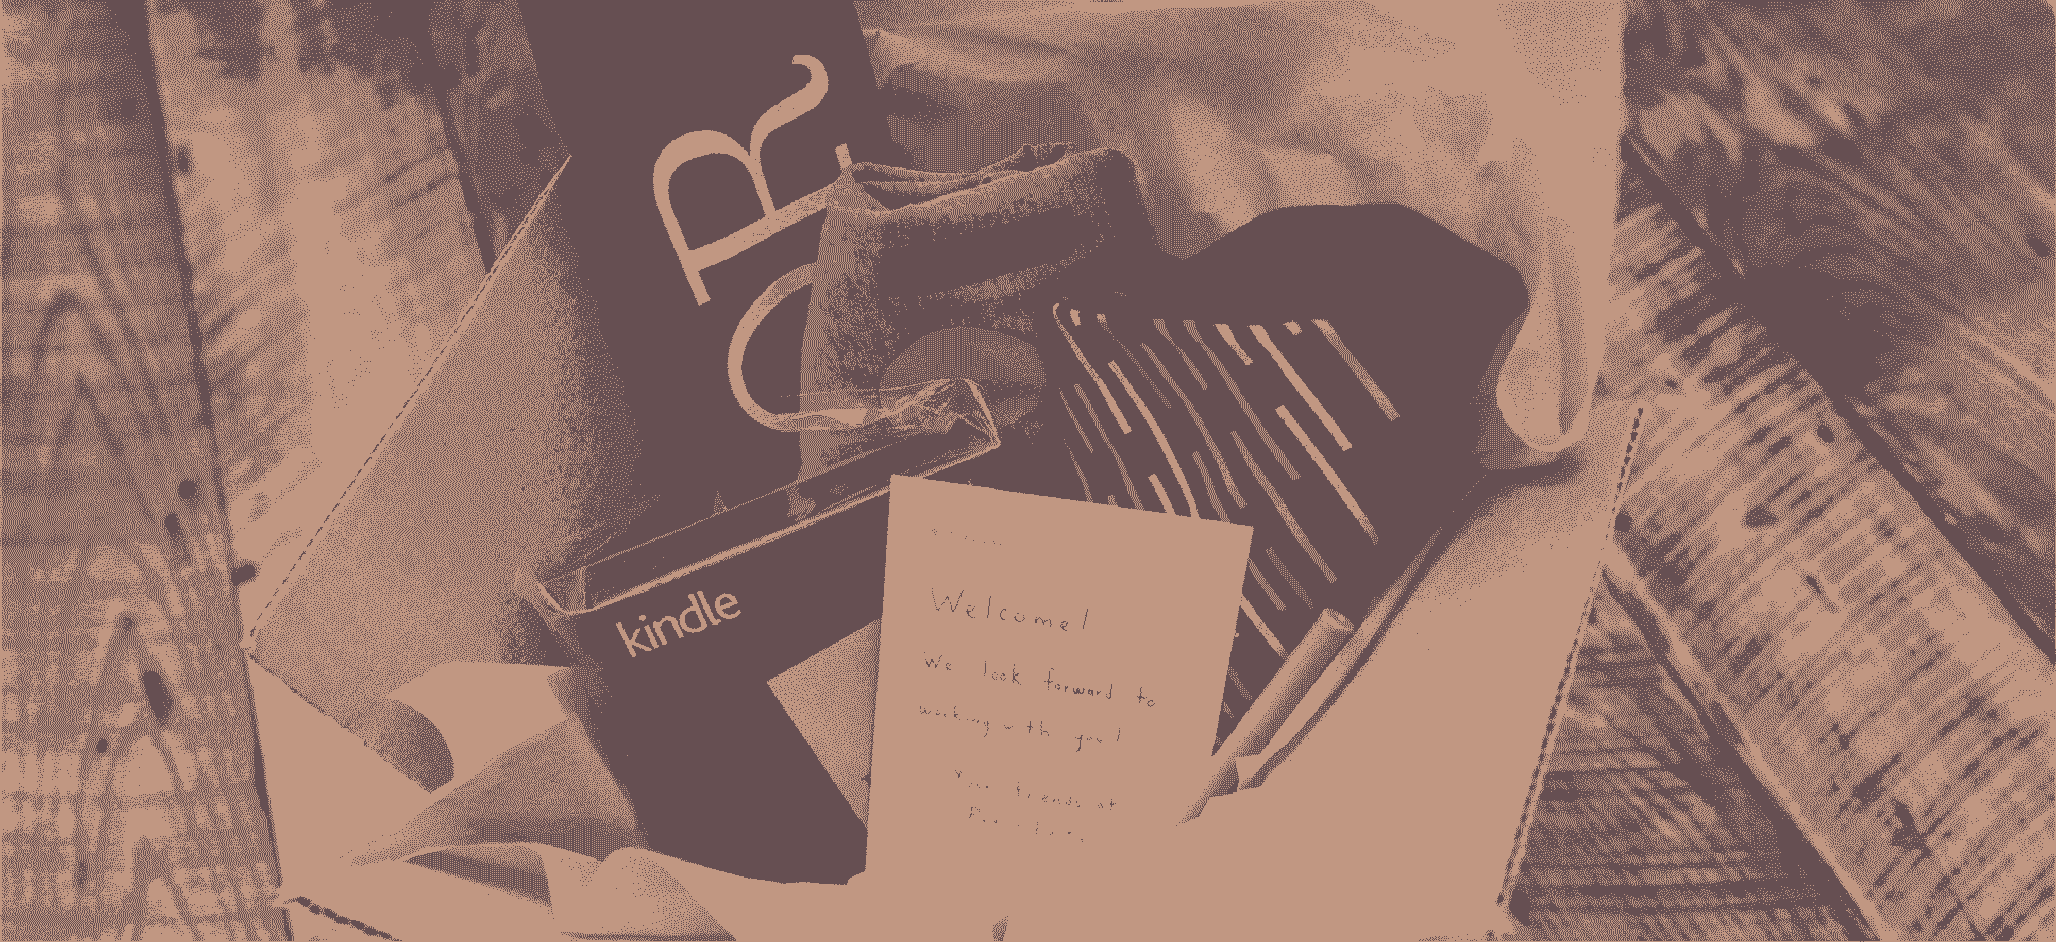 R
kindle
Welcome!
We look forward to
working with you!
Your friends at